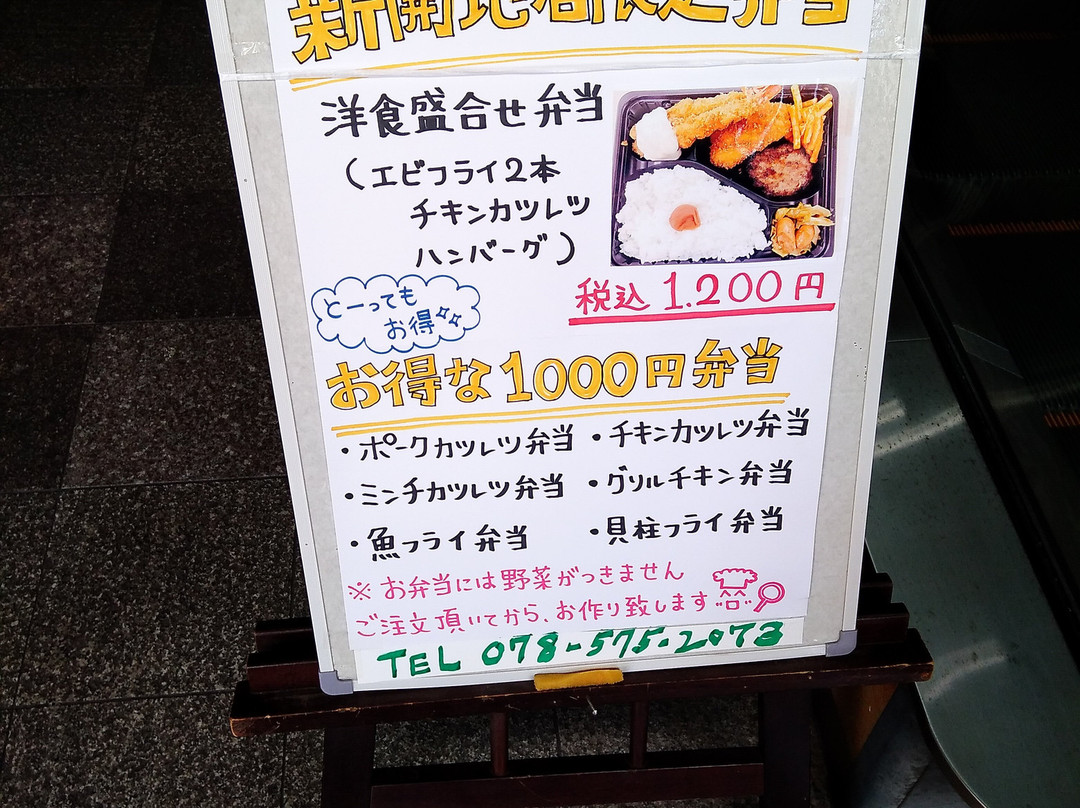 新開地店限定弁当
洋食盛合せ弁当
(エビフライ2本
チキンカツレツ
ハンバーグ)
税込 1.200円
とーっても
お得
お得な1000円弁当
・ポークカツレツ弁当 ・チキンカツレツ弁当
・ミンチカツレツ弁当 ・グリルチキン弁当
・魚フライ弁当 ・貝柱フライ弁当
※お弁当には野菜がつきません
ご注文頂いてから、お作り致します
TEL 078-575-2073